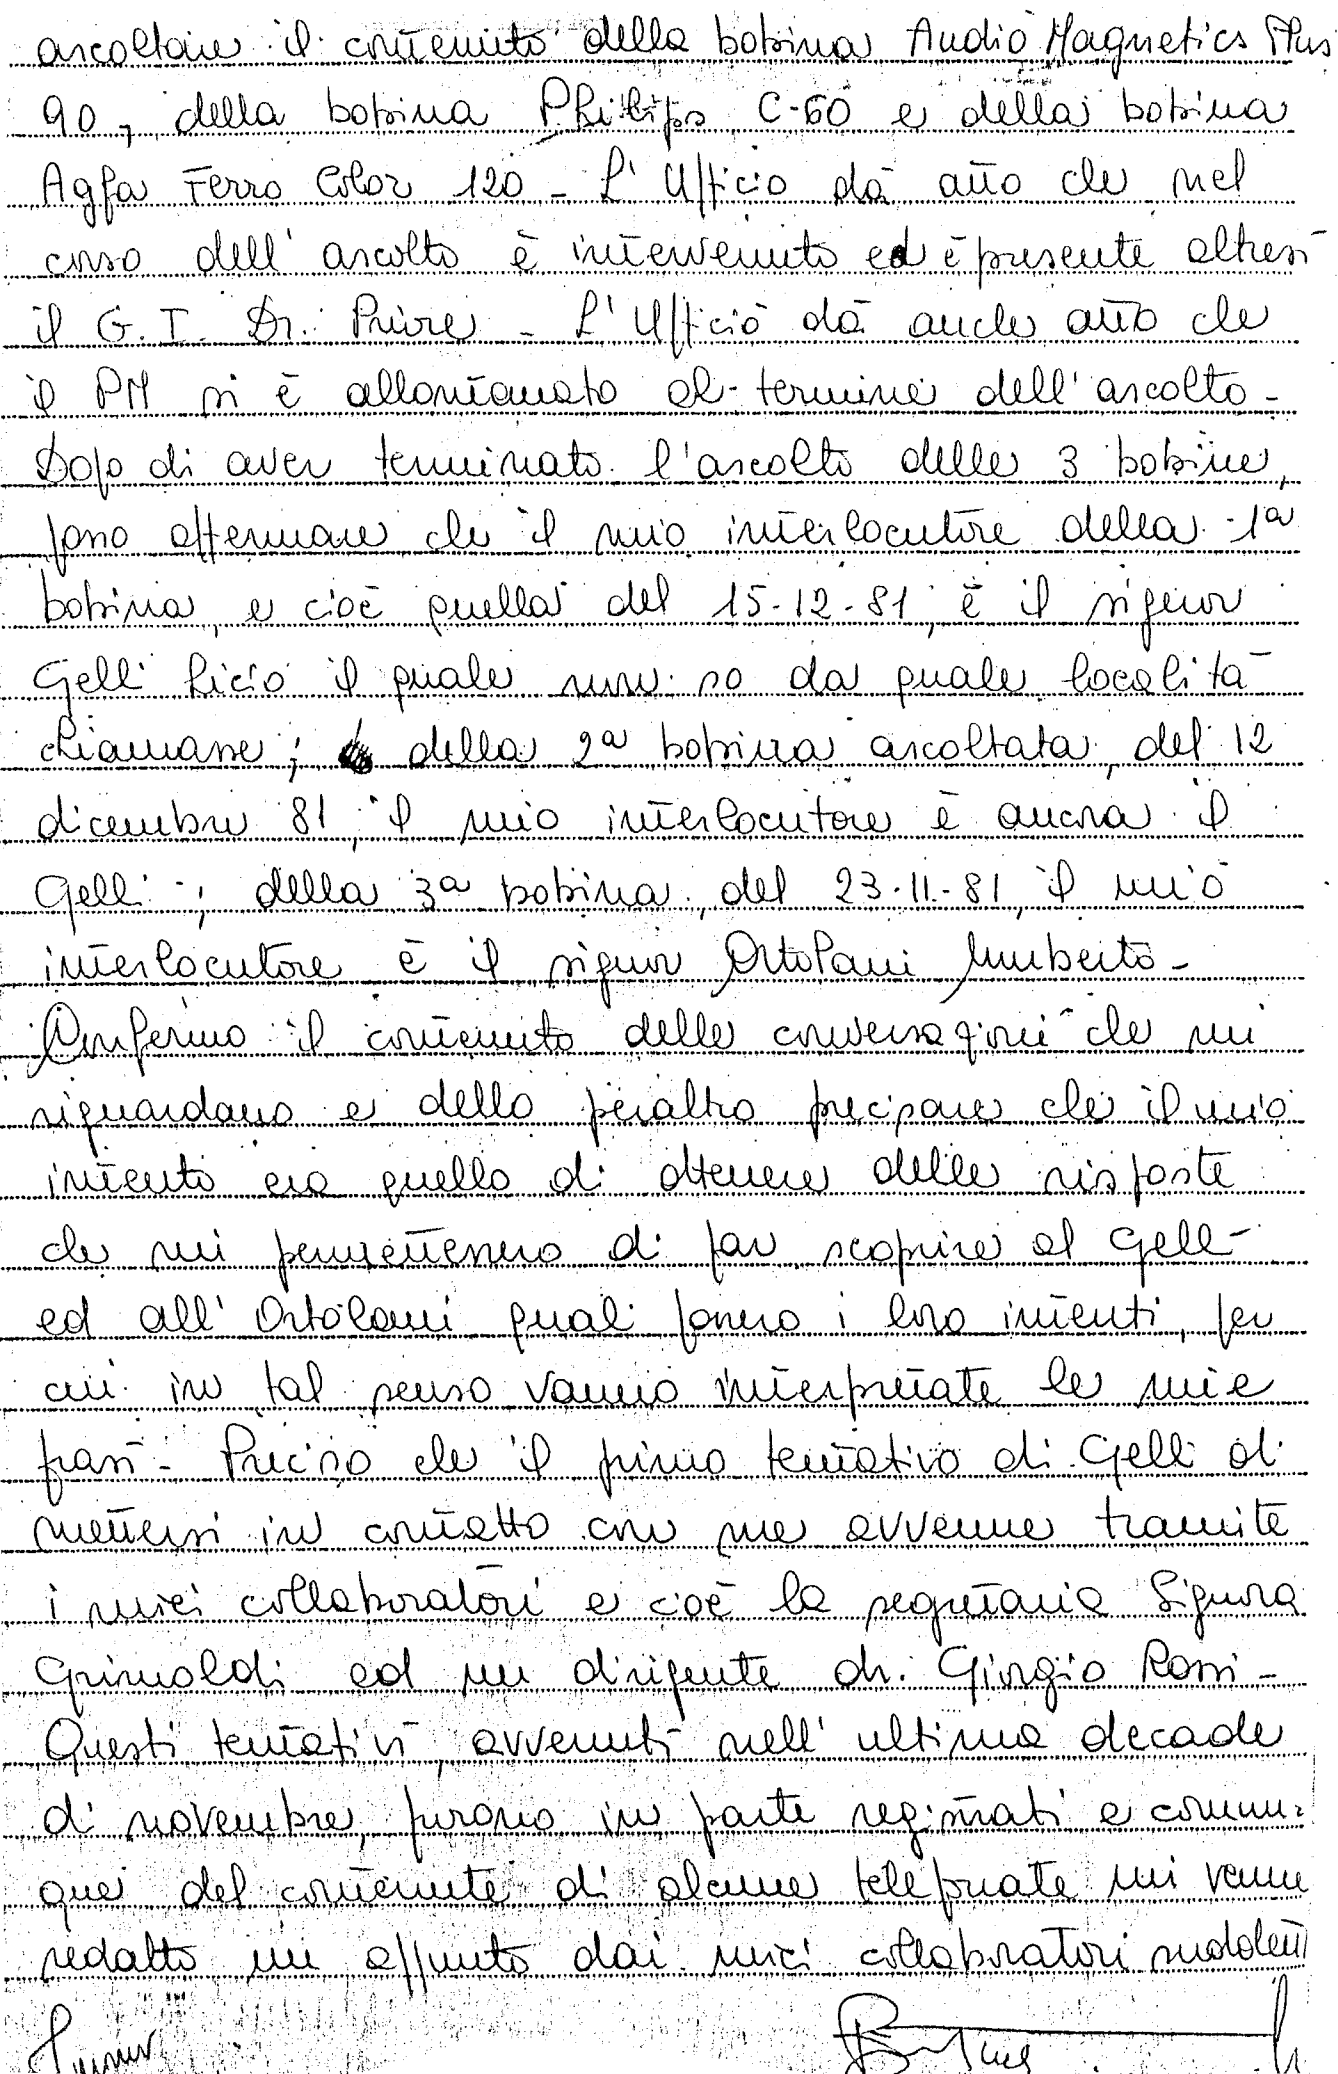 ascoltare il contenuto della bobina Audio Magnetics Plus
90, della bobina Philips C-60 e della bobina
Agfa Ferro Color 120 - L'Ufficio dà atto che nel
corso dell'ascolto è intervenuto ed è presente altresì
il G.I. Dr. Priore - L'Ufficio dà anche atto che
il PM si è allontanato al termine dell'ascolto -
Dopo di aver terminato l'ascolto delle 3 bobine,
posso affermare che il mio interlocutore della 1ª
bobina, e cioè quella del 15-12-81, è il signor
Gelli Licio il quale non so da quale località
chiamasse; della 2ª bobina ascoltata, del 12
dicembre 81, il mio interlocutore è ancora il
Gelli; della 3ª bobina, del 23-11-81, il mio
interlocutore è il signor Ortolani Umberto -
Confermo il contenuto delle conversazioni che mi
riguardano e debbo peraltro precisare che il mio
intento era quello di ottenere delle risposte
che mi permettessero di far scoprire al Gelli
ed all'Ortolani quali fossero i loro intenti, per
cui in tal senso vanno interpretate le mie
frasi - Preciso che il primo tentativo di Gelli di
mettersi in contatto con me avvenne tramite
i miei collaboratori e cioè la segretaria Signora
Grimoldi ed un dirigente dr. Giorgio Rossi -
Questi tentativi, avvenuti nell'ultima decade
di novembre, furono in parte registrati e comun=
que del contenuto di alcune telefonate mi venne
redatto un appunto dai miei collaboratori suddetti